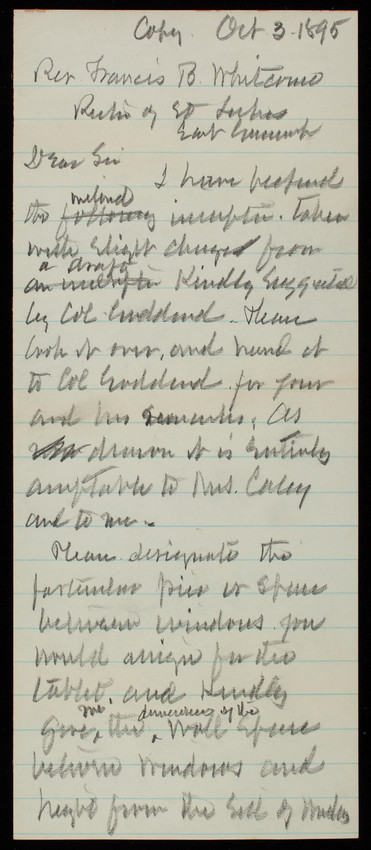 Copy. Oct 3. 1895
Rev Francis B. Whitcome
Rector of St Lukes
East Greenwich
Dear Sir
I have prepared
the following inclosed inscription. taken
with slight changes from
an inscriptn a draft Kindly suggested
by Col Goddard. Please
look it over, and hand it
to Col Goddard for your
and his remarks. As
drawn it is entirely
acceptable to Mrs. Casey
and to me.
Please designate the
particular pier or space
between windows you
would assign for the
tablet, and Kindly
give me, the dimensions of the Wall Space
between Windows and
height from the Sill of Window